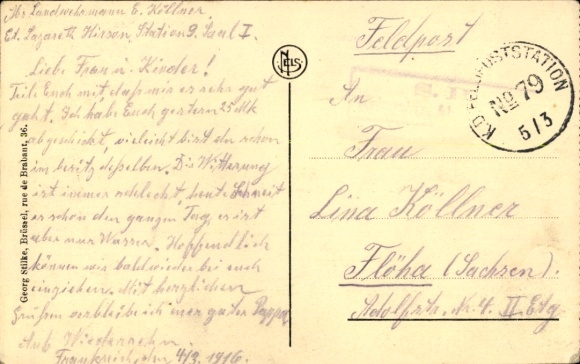 Abs. Landwehrmann E. Köllner
Et. Lazarett Hirson, Station 9. Saal I.
Liebe Frau u. Kinder!
Teile Euch mit, daß mir es sehr gut
geht. Ich habe Euch gestern 25 Mk
abgeschickt, vieleicht bist du schon
im besitz desselben. Die Witterung
ist immer schlecht, heute Schneit
es schon den ganzen Tag, es ist
aber nur Wasser. Hoffendlich
können wir bald wieder bei euch
einziehen. Mit herzlichen
Grüßen verbleibe ich euer guter Pappa
Auf Wiedersehn.
Frankreich, den 4/3. 1916.
Georg Stilke, Brüssel, rue de Brabant, 36.
NELS
Feldpost
S.B.
K.D. FELDPOSTSTATION
No 79
5/3
An
Frau
Lina Köllner
Flöha (Sachsen).
Adolfstr. Nr. 4. II Etg